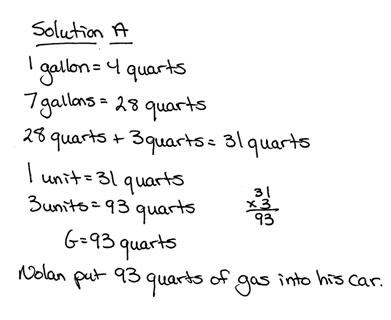 Solution A
1 gallon = 4 quarts
7 gallons = 28 quarts
28 quarts + 3 quarts = 31 quarts
1 unit = 31 quarts
3 units = 93 quarts
31
x 3
93
G = 93 quarts
Nolan put 93 quarts of gas into his car.